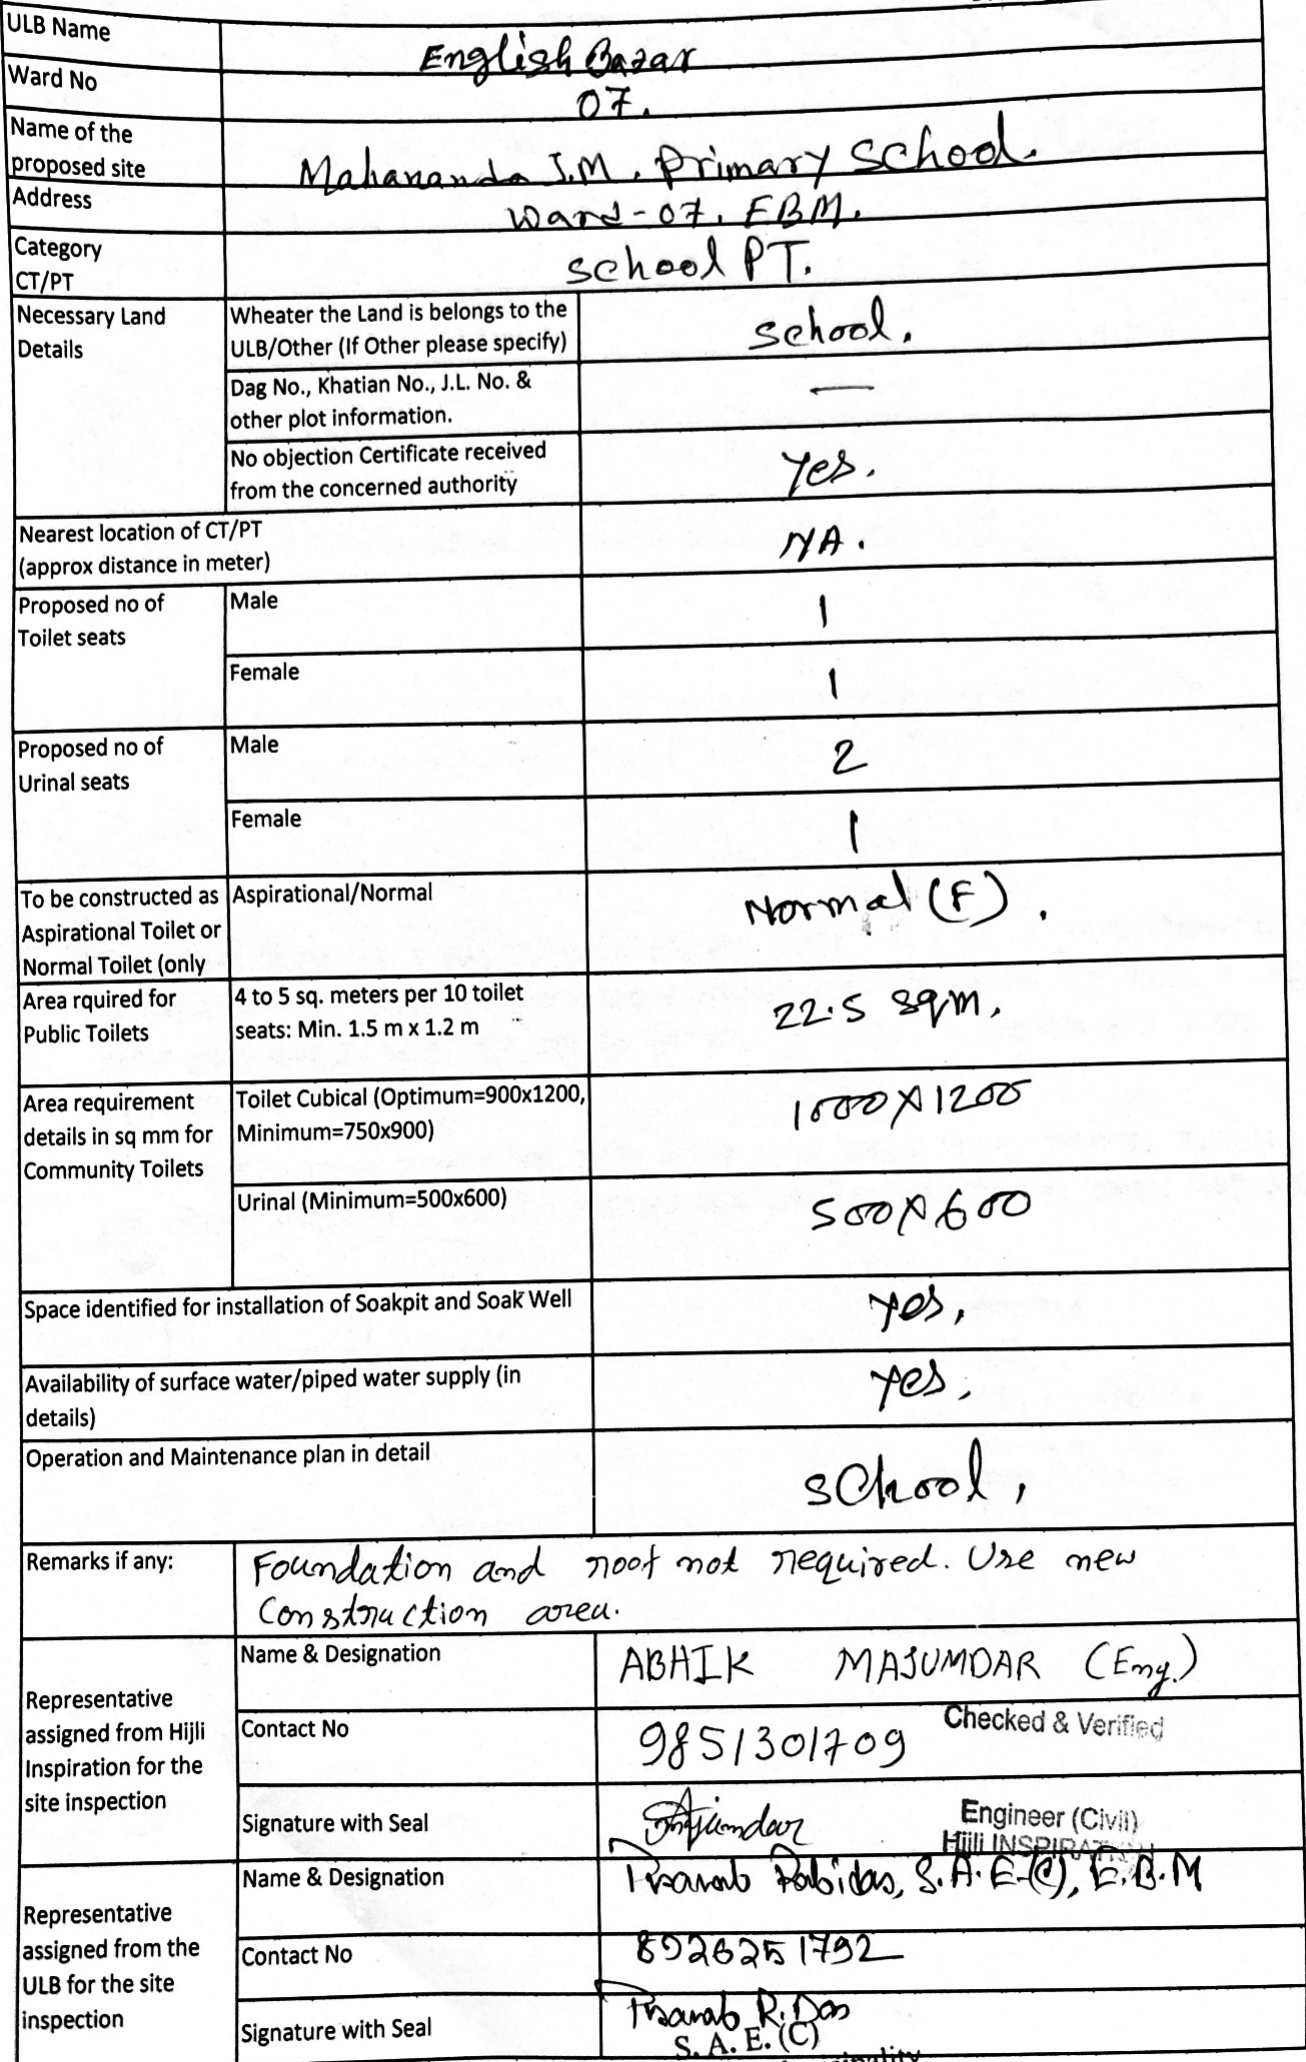 ULB Name
English Bazar
Ward No
07.
Name of the
proposed site
Mahananda J.M. Primary School.
Address
Ward-07, EBM.
Category
CT/PT
School PT.
Necessary Land
Details
Wheater the Land is belongs to the
ULB/Other (If Other please specify)
School.
Dag No., Khatian No., J.L. No. &
other plot information.
—
No objection Certificate received
from the concerned authority
Yes.
Nearest location of CT/PT
(approx distance in meter)
NA.
Proposed no of
Toilet seats
Male
1
Female
1
Proposed no of
Urinal seats
Male
2
Female
1
To be constructed as
Aspirational Toilet or
Normal Toilet (only
Aspirational/Normal
Normal (F).
Area rquired for
Public Toilets
4 to 5 sq. meters per 10 toilet
seats: Min. 1.5 m x 1.2 m
22.5 sqm.
Area requirement
details in sq mm for
Community Toilets
Toilet Cubical (Optimum=900x1200,
Minimum=750x900)
1000X1200
Urinal (Minimum=500x600)
500X600
Space identified for installation of Soakpit and Soak Well
Yes,
Availability of surface water/piped water supply (in
details)
Yes,
Operation and Maintenance plan in detail
School,
Remarks if any:
Foundation and roof not required. Use new
Construction area.
Representative
assigned from Hijli
Inspiration for the
site inspection
Name & Designation
ABHIK MAJUMDAR (Eng.)
Contact No
9851301709
Checked & Verified
Signature with Seal
Engineer (Civil)
Hijli INSPIRATION
Representative
assigned from the
ULB for the site
inspection
Name & Designation
Pranab Rabidas, S.A.E-(C), E.B.M
Contact No
8926251792
Signature with Seal
Pranab R. Das
S. A. E. (C)